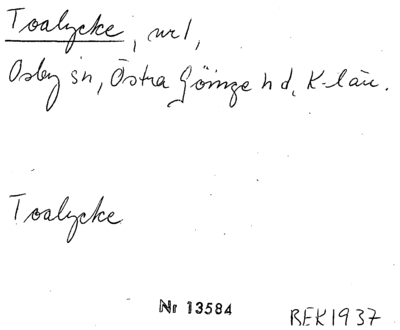 Toalycke, nr 1,
Osby sn, Östra Göinge hd, K-län.
Toalycke
Nr 13584
BEK1937